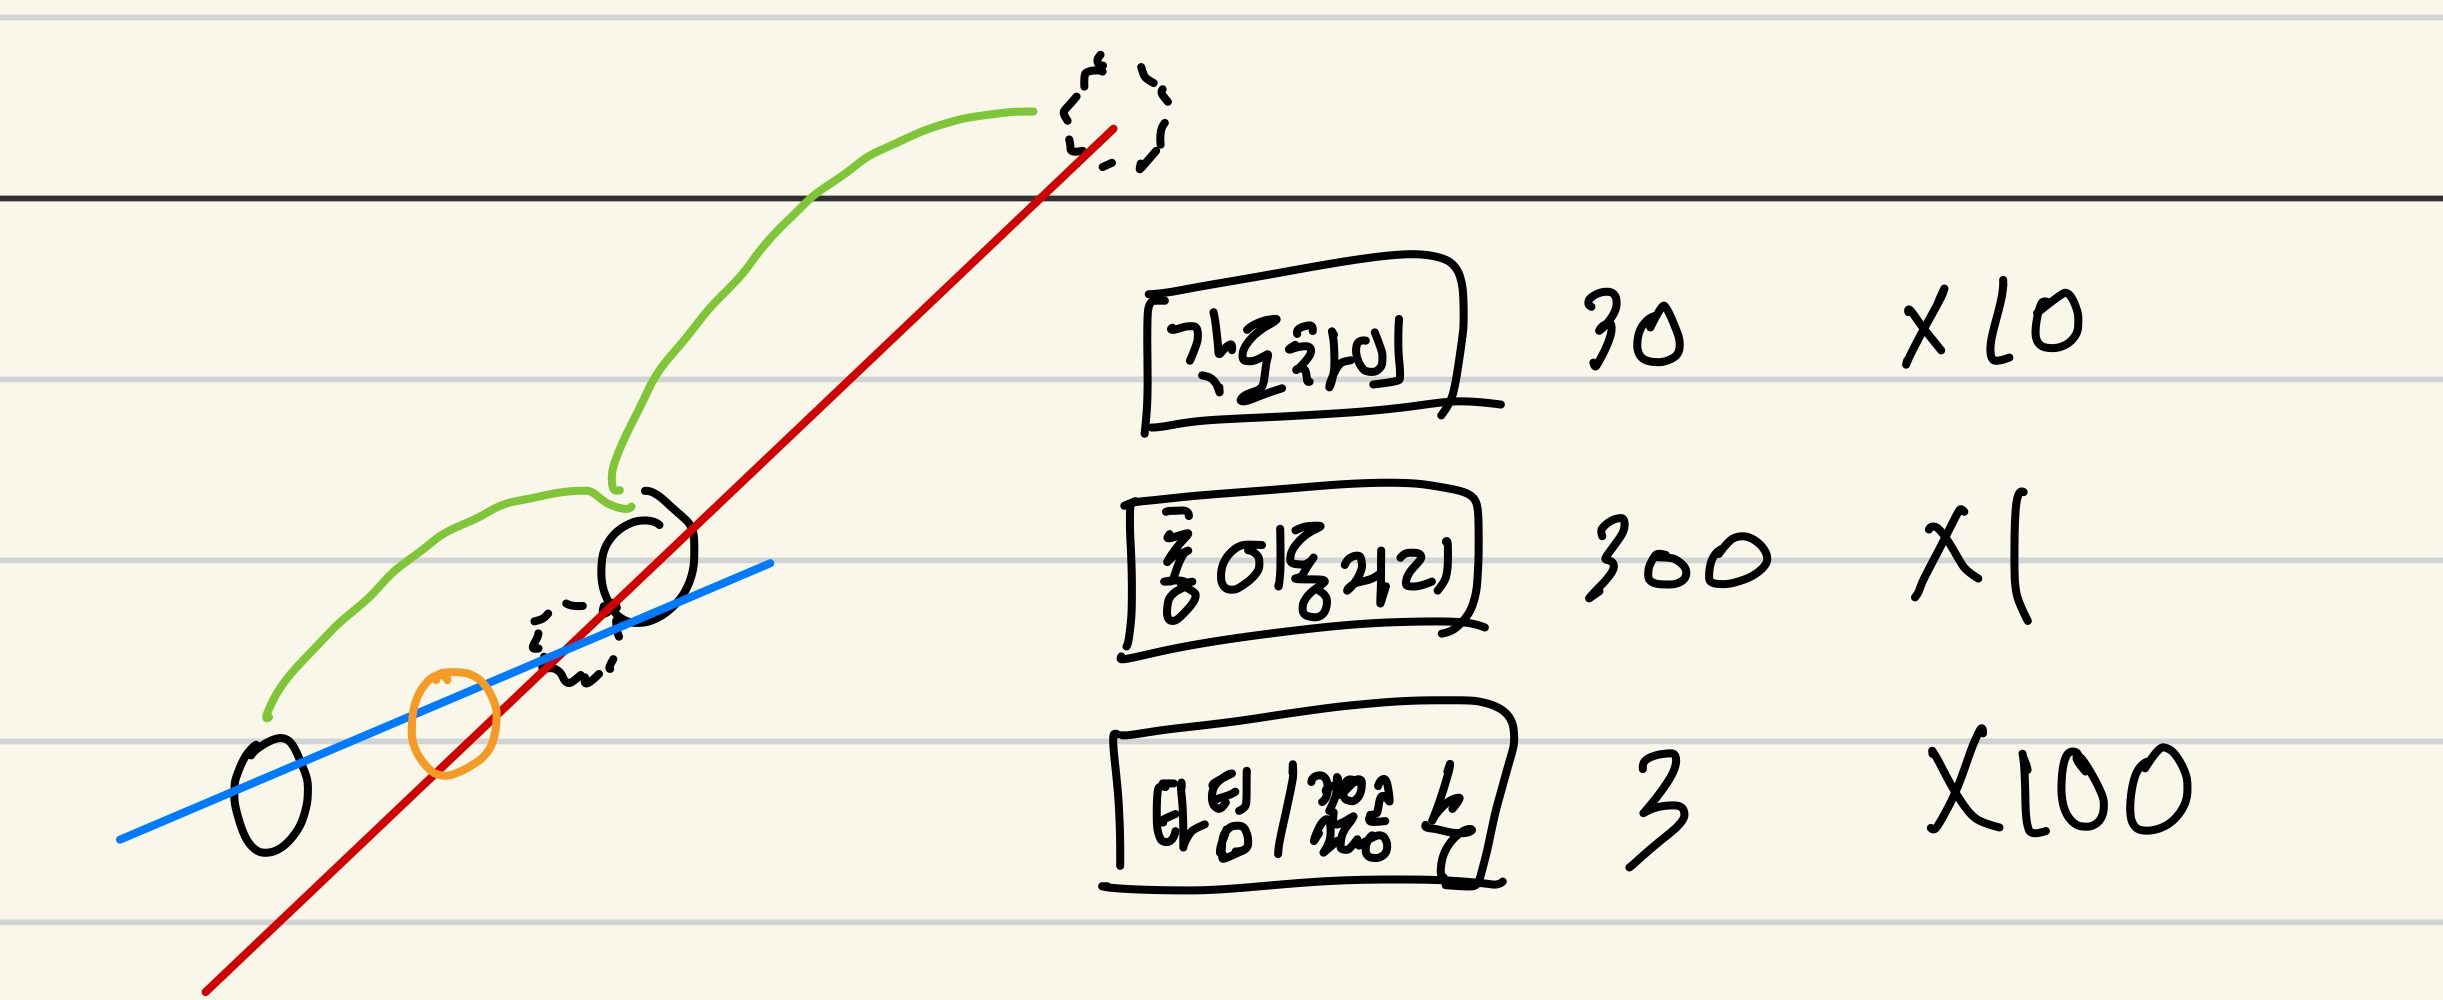 각도차이 30 x10
총이동거리 300 x1
3 x100